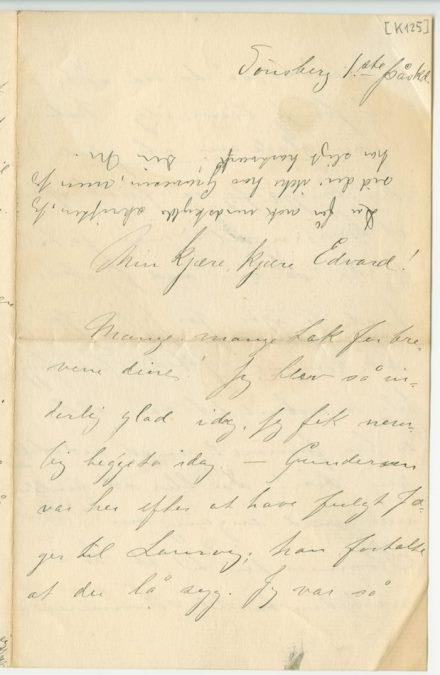 [K125]
Tønsberg 1ste Påskd.
Du får nok undskylde skriften, jeg
ved du ikke har men jeg
har sligt hastværk. Din M.
Min Kjære, Kjære Edvard!
Mange, mange tak for bre-
vene dine! Jeg blev så in-
derlig glad idag, jeg fik nem-
lig begge to idag — Gundersen
var her efter at have fulgt Jæ-
ger til Laurvig; han fortalte
at du lå syg. Jeg var så